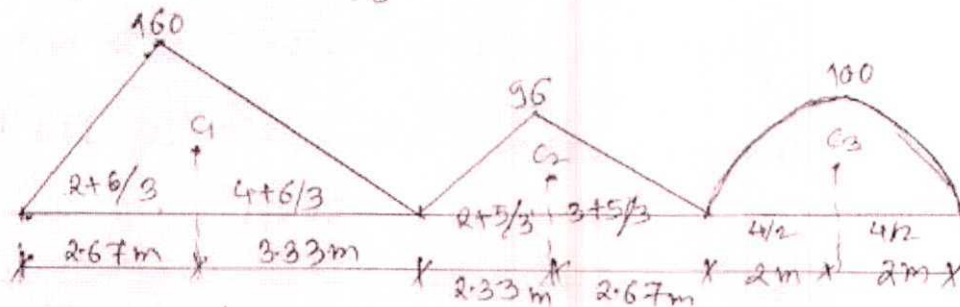 160
96
100
C1
C2
C3
2+6/3
4+6/3
2+5/3
3+5/3
4/2
4/2
2.67m
3.33m
2.33m
2.67m
2m
2m